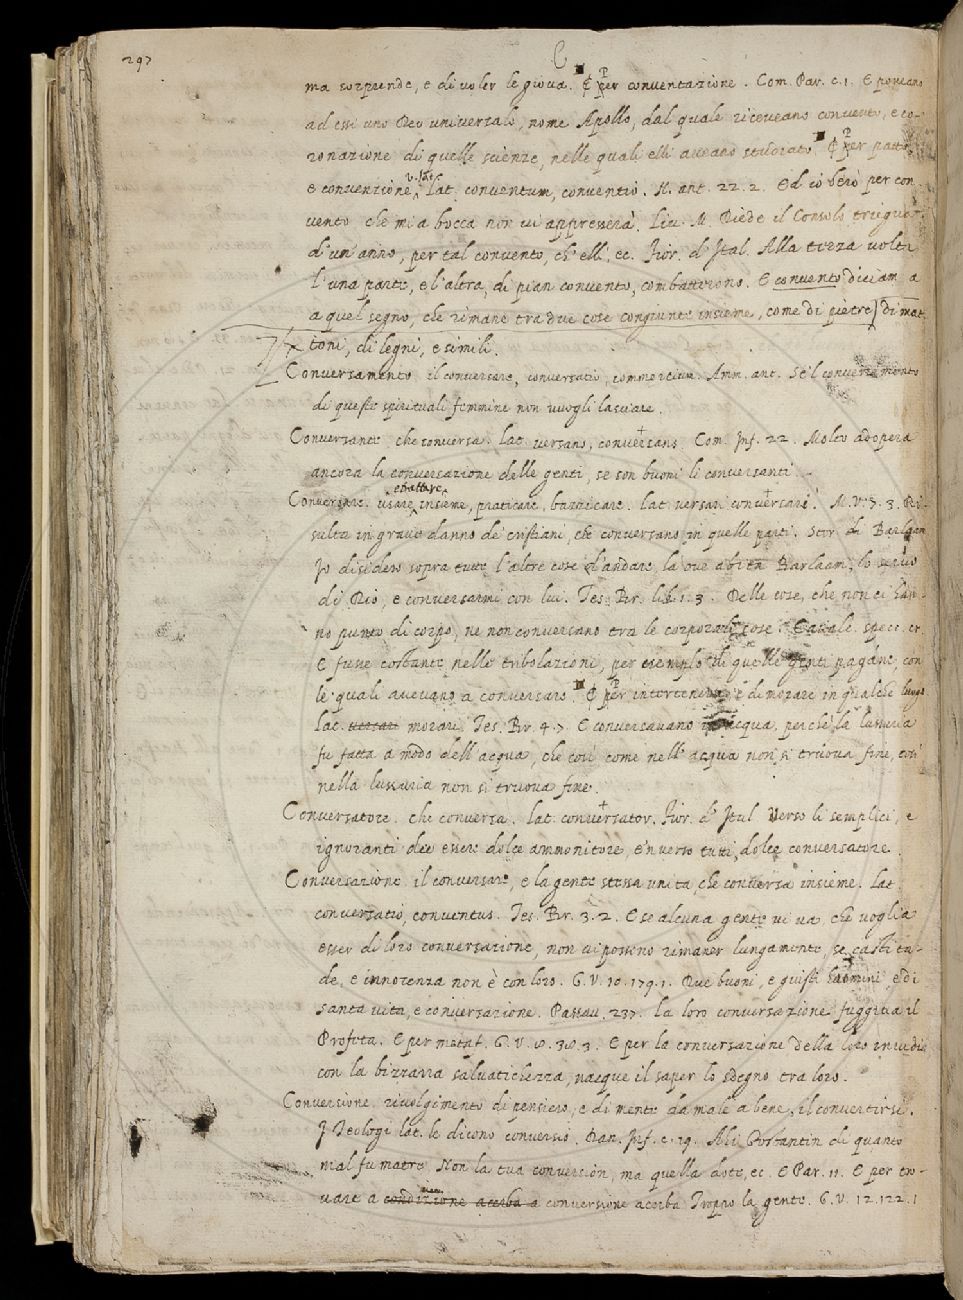 297
C
ma sorprende, e di voler le giova. ¶ P per conventazione. Com. Par. c. 1. E poneano
ad essi uno Deo universale, nome Apollo, dal quale riceveano convento, e co-
ronazione di quelle scienze, nelle quali elli aveano studiato ¶ P per patto,
e convenzione, lat. conventum, conventio. N. ant. 22. 2. Ed io berò per con
vento che mia bocca non vi appresserà. Liv. M. Diede il Consolo triegua
d'un'anno, per tal convento, ch'elli, ec. Fior. d'Ital. Alla terza volta
l'una parte, e l'altra, di pian convento, combatterono. E convento diciam a
a quel segno, che rimane tra due cose congiunte insieme, come di pietre, di mat
toni, di legni, e simili.
Conversamento il conversare, conversatio, commercium. Amm. ant. Se'l conversamento
di queste spirituali femmine non vuogli lasciare.
Conversante che conversa. lat. versans, conversans. Com. Inf. 22. Molto adopera
ancora la conversazione delle genti, se son buoni li conversanti.
Conversare. usare insieme, praticare, bazzicare. lat. versari conversari. M. V. 7. 3. Ri-
sulta in grave danno de' cristiani, che conversano in quelle parti. Stor. di Barlaam
Io disidero sopra tutte l'altre cose d'andare, la ove abita Barlaam, lo servo
di Dio, e conversarmi con lui. Tes. Br. lib. 1. 3. Delle cose, che non ci han-
no punto di corpo, ne non conversano tra le corporali cose. Cavalc. specc. cr.
E fusse costante nelle tribolazioni, per esemplo di quelle genti pagane, con
le quali avevano a conversare ¶ P per intertenersi, e dimorare in qualche luogo
lat. versari morari. Tes. Br. 4. 7. E conversavano in acqua, perchè la lussuria
fu fatta a modo dell'acqua, che così come nell'acqua non si truova fine, così
nella lussuria non si truova fine.
Conversatore. che conversa. lat. conversator. Fior. d'Ital. Verso li semplici, e
ignoranti dee essere dolce ammonitore, e 'nverso tutti, dolce conversatore.
Conversazione. il conversare, e la gente stessa unita, che conversa insieme. Lat.
conversatio, conventus. Tes. Br. 3. 2. E se alcuna gente vi va che voglia
esser di loro conversazione, non vi possono rimaner lungamente, se castita-
de, e innocenza non è con loro. G. V. 10. 179. 1. Due buoni, e giusti huomini, e di
santa vita, e conversazione. Passav. 237. la loro conversazione fuggiva il
Profeta. E per metaf. G. V. 10. 30. 3. E per la conversazione della loro invidia
con la bizzarra salvatichezza, nacque il saper lo sdegno tra loro.
Conversione. rivolgimento di pensiero, e di mente da male a bene, il convertirsi.
I Teologi lat. le dicono conversio. Dan. Inf. c. 19. Ahi Costantin di quanto
mal fu matre Non la tua conversion, ma quella dote, ec. E Par. 11. E per tro-
vare a condizione acerba a conversione acerba Troppo la gente. G. V. 12. 122. 1